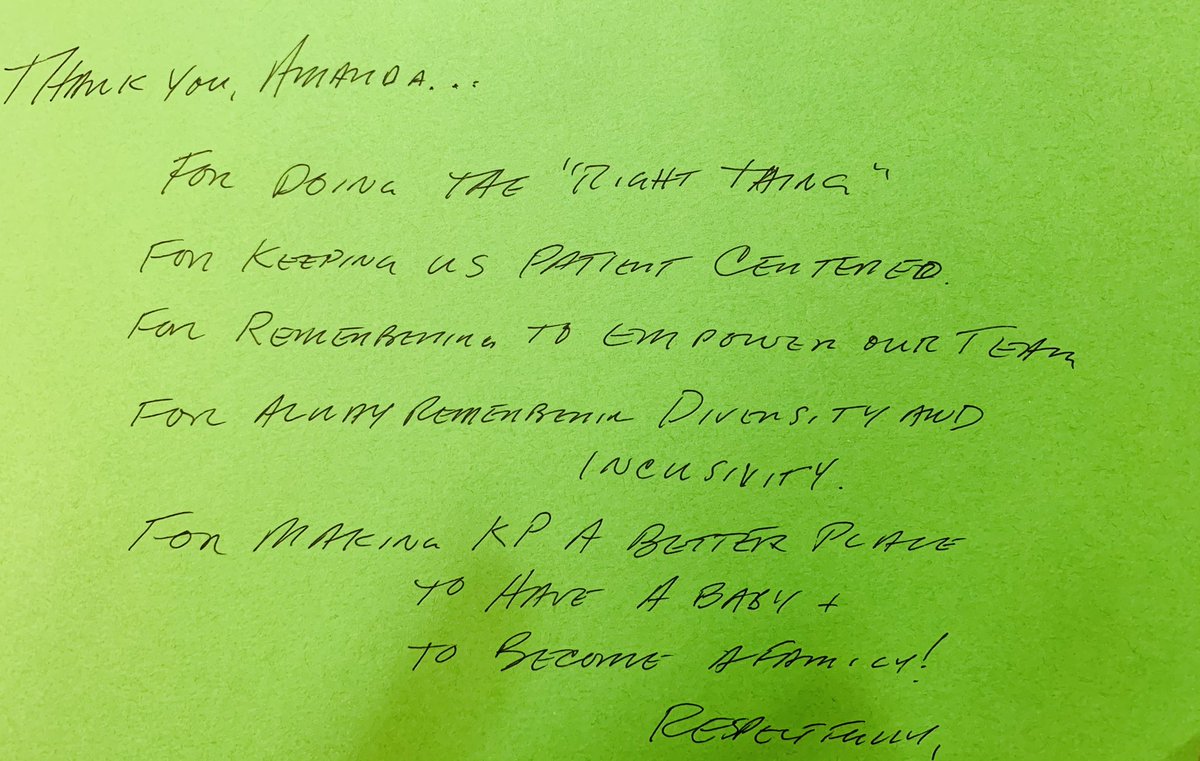 THANK YOU, AMANDA...
FOR DOING THE "RIGHT THING"
FOR KEEPING US PATIENT CENTERED.
FOR REMEMBERING TO EMPOWER OUR TEAM
FOR ALWAY REMEMBERIN DIVERSITY AND
INCLUSIVITY.
FOR MAKING KP A BETTER PLACE
TO HAVE A BABY +
TO BECOME A FAMILY!
RESPECTFULLY,